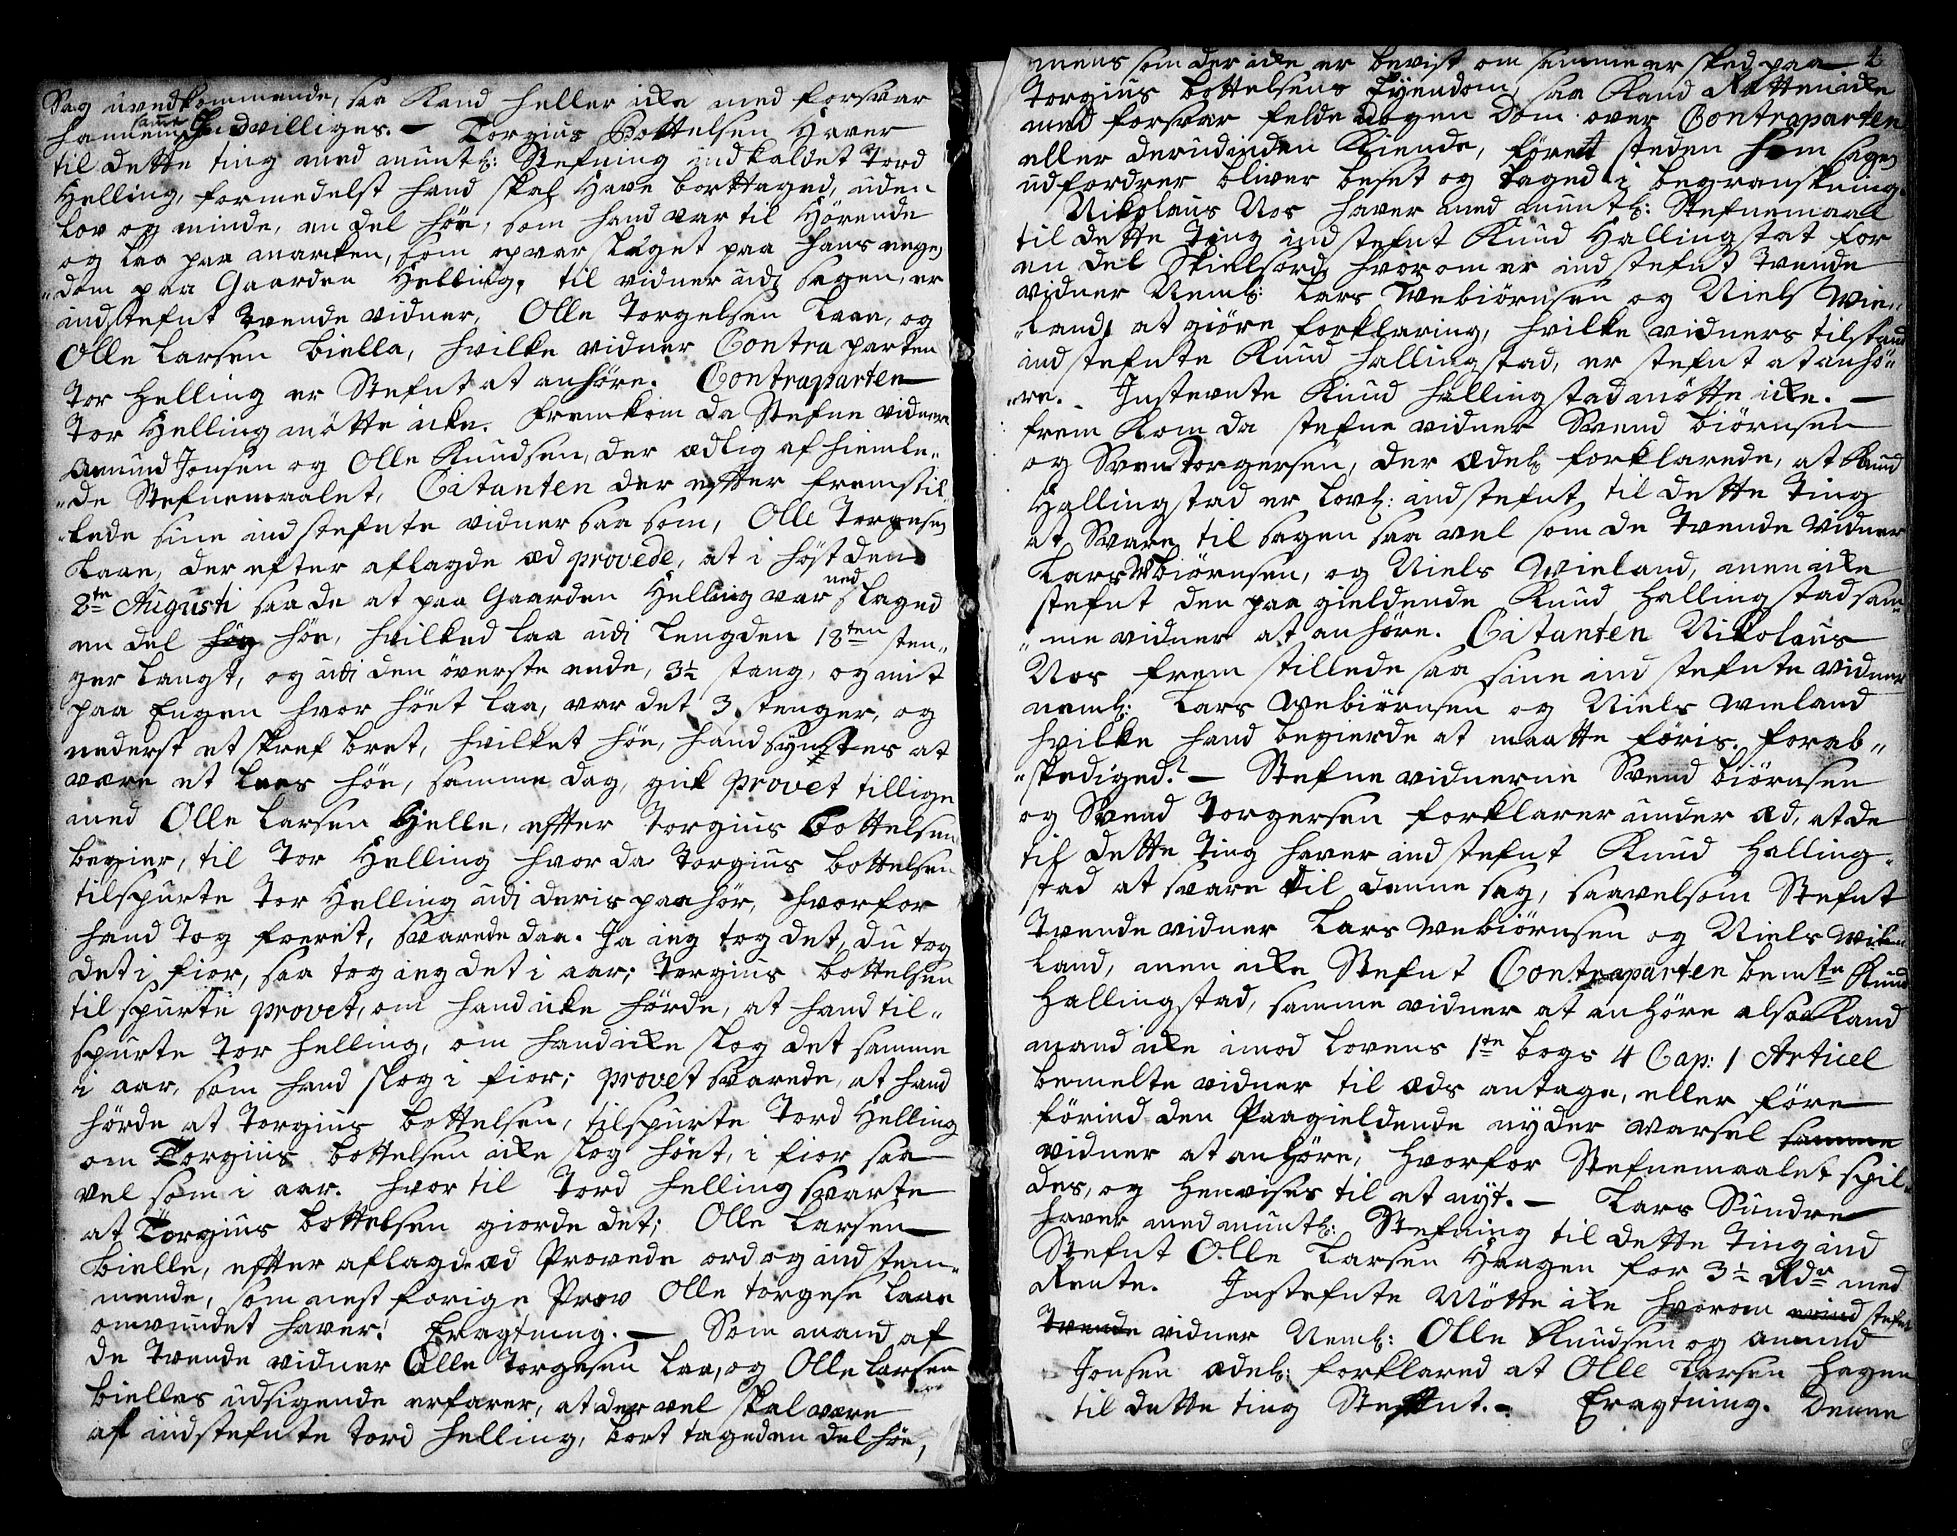 Sag uvedkommende, saa Kand heller icke med forsvar
hannem samme Indvilliges. — Torgius Bottelsen Haver
til dette ting med muntl: Stefning indkaldet Tord
Helling, formedelst hand skal Have borttaged, uden
lov og minde, en del höe, som hand var til Hörende
og laa paa marcken, som opvar slaget paa hans eyen
"dom paa Gaarden Helling, til vidner udj sagen, er
indstefnt tvende vidner, Olle Torgelsen Laae, og
Olle Larsen Biella, hvilke vidner Contra parten
Tor Helling er Stefnt at anhöre. Contraparten
Tor Helling mötte icke. fremkom da Stefne vidnerne
Amund Jonsen og Olle Knudsen, der ædlig af hiemle„
„de Stefnemaalet, Citanten der effter fremstil
„lede sine indstefnte vidner saa som, Olle Torgesen
Laae, der efter aflagde æd provede, at i höst den
8te Augusti saa de at paa Gaarden Helling var ned slaged
en del höe, hvilked laa udi lengden 18ten sten„
ger langt, og udi den överste ende, 3½ stang, og mit
paa Engen hvor höet laa, var det 3 stenger, og
nederst et skref bret, hvilket höe, hand syntes at
være et læs höe, samme dag, gick provet tillige
med Olle Larsen Hielle, effter Torgius Bottelsens
begier, til Tor Helling hvor da Torgius bottelsen
tilspurte Tor Helling udi deris paahör, hvorfor
hand tog foeret, svarede daa. Ja ieg tog det, du tog
det i fior, saa tog ieg det i aar; Torgius bottelsen
til spurte provet, om hand icke hörde, at hand til„
spurte Tor Helling, om hand icke slog det samme
i aar, som hand slog i fior; provet svarede, at hand
hörde at Torgius bottelsen, tilspurte Tord Helling
om Torgius bottelsen icke slog höet, i fior saa
vel som i aar. hvor til Tord Helling svarte
at Torgius bottelsen giorde det; Olle Larsen
bielle, effter aflagde æd Provede ord og indstem„
mende, som nest forige Prov Olle torgese Laae
omvundet haver! Eragtning. — Som mand af
de tvende vidner Olle Torgesen Laa, og Olle Larsen
bielles udsigende erfarer, at der vel skal være
af indstefnte Tord Helling, bort taged en del höe,
mens som der icke er bevist om samme er sked paa
Torgius bottelsens Eyendom, saa Kand Retten icke
med forsvar felde nogen Dom over Contraparten
eller derudinden Kiende, förend steden som sagen
udfordrer bliver beset og taged i begranskning.
Nikolaus Nos haver med muntl: Stefnemaal
til dette Ting ind stefnt Knud Hallingstat for
en del Skielsord, hvorom er indstefnt tvende
vidner Neml: Lars Webiörnsen og Niels Wie„
„land, at giöre forklaring, hvilke vidners tilstand
indstefnte Knud Hallingstad, er stefnt at anhö„
„re. Instevnte Knud Hallingstad mötte icke. —
frem Kom da stefne vidner Svend biörnsen
og Sven Torgersen, der Ædel: forklarede, at Knud
Hallingstad er lovl: indstefnt, til dette Ting
at Svare til sagen saa vel som de tvende vidner
Lars Wbiörnsen, og Niels Wieland, men icke
stefnt den paa gieldende Knud Hallingstad sam„
„me vidner at anhöre. Citanten Nikolaus
Nos frem stillede saa sine ind stefnte vidner
neml: Lars Webiörnsen og Niels Wieland
hvilke hand begierde at maatte föris. forab„
„skediged. — Stefne vidnerne Svend biörnsen
og Svend Torgersen forklarer under æd, at de
til dette Ting haver indstefnt Knud Halling„
stad at svare til denne sag, saavelsom Stefnt
tvende vidner Lars Webiörnsen og Niels Wie
land, men icke Stefnt Contraparten bemte Knud
Hallingstad, samme vidner at anhöre altsaa Kand
mand icke imod lovens 1ste bogs 4 Cap: 1 Articel
bemelte vidner til æds antage, eller före
förind den Paagieldende nyder varsel samme
vidner at anhöre, hvorfor Stefnemaalet spil„
des, og henvises til et nyt. — Lars Sundre
haver med muntl: Stefning til dette Ting ind
Stefnt Olle Larsen Haagen for 3½ Rdr med
Rente. Instefnte Mötte icke hvorom stefnt
tvende vidner Neml: Olle Knudsen og Amund
Jonsen ædel: forklared at Olle Larsen Hagen
til dette ting Steffnt. — Eragtning. Denne